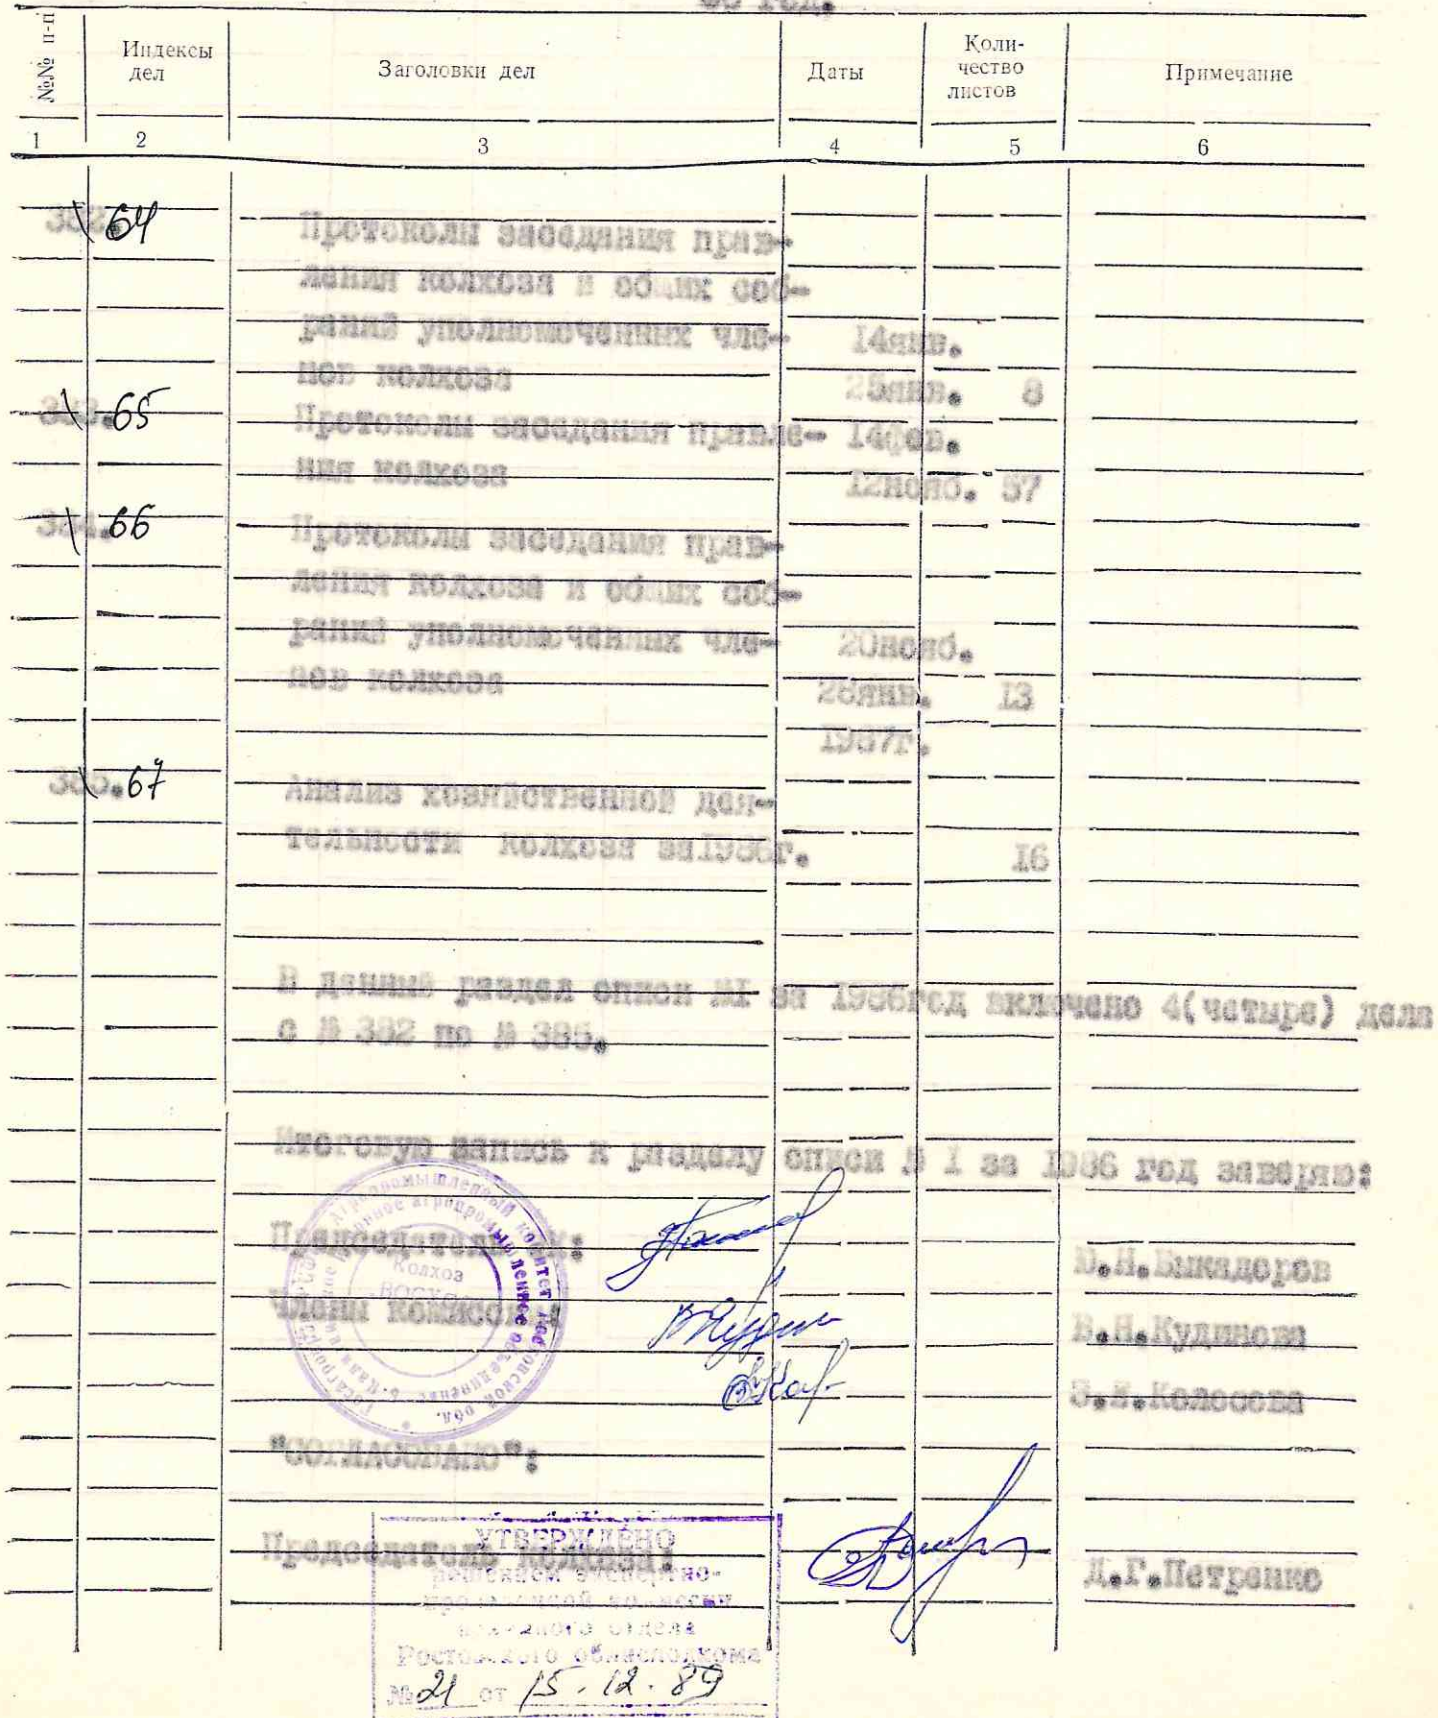 86 год.
№№ п-п
Индексы дел
Заголовки дел
Даты
Коли-
чество
листов
Примечание
1 2 3 4 5 6
382. 64 Протоколы заседания прав-
ления колхоза и общих соб-
раний уполномоченных чле- 14янв.
нов колхоза 28янв. 8
383. 65 Протоколы заседания правле- 14фев.
ния колхоза 12нояб. 57
384. 66 Протоколы заседания прав-
ления колхоза и общих соб-
раний уполномоченных чле- 20нояб.
нов колхоза 28янв. 13
1987г.
385. 67 Анализ хозяйственной дея-
тельности колхоза за1986г. 16
В данный раздел описи №I за 1986год включено 4(четыре) дела
с № 382 по № 385.
Итоговую запись к разделу описи № I за 1986 год заверяю:
Председатель ЭК:
Члены комиссии:
Агропромышленный комитет Ростовской обл.
агропромышленное объединение
Колхоз
Ю.Н.Бикадоров
В.Н.Кудинова
Колосова
"СОГЛАСОВАНО":
Председатель колхоза:
Д.Г.Петренко
УТВЕРЖДЕНО
решением экспертно-
проверочной комиссии
архивного отдела
Ростовского облисполкома
№ 21 от 15.12.89